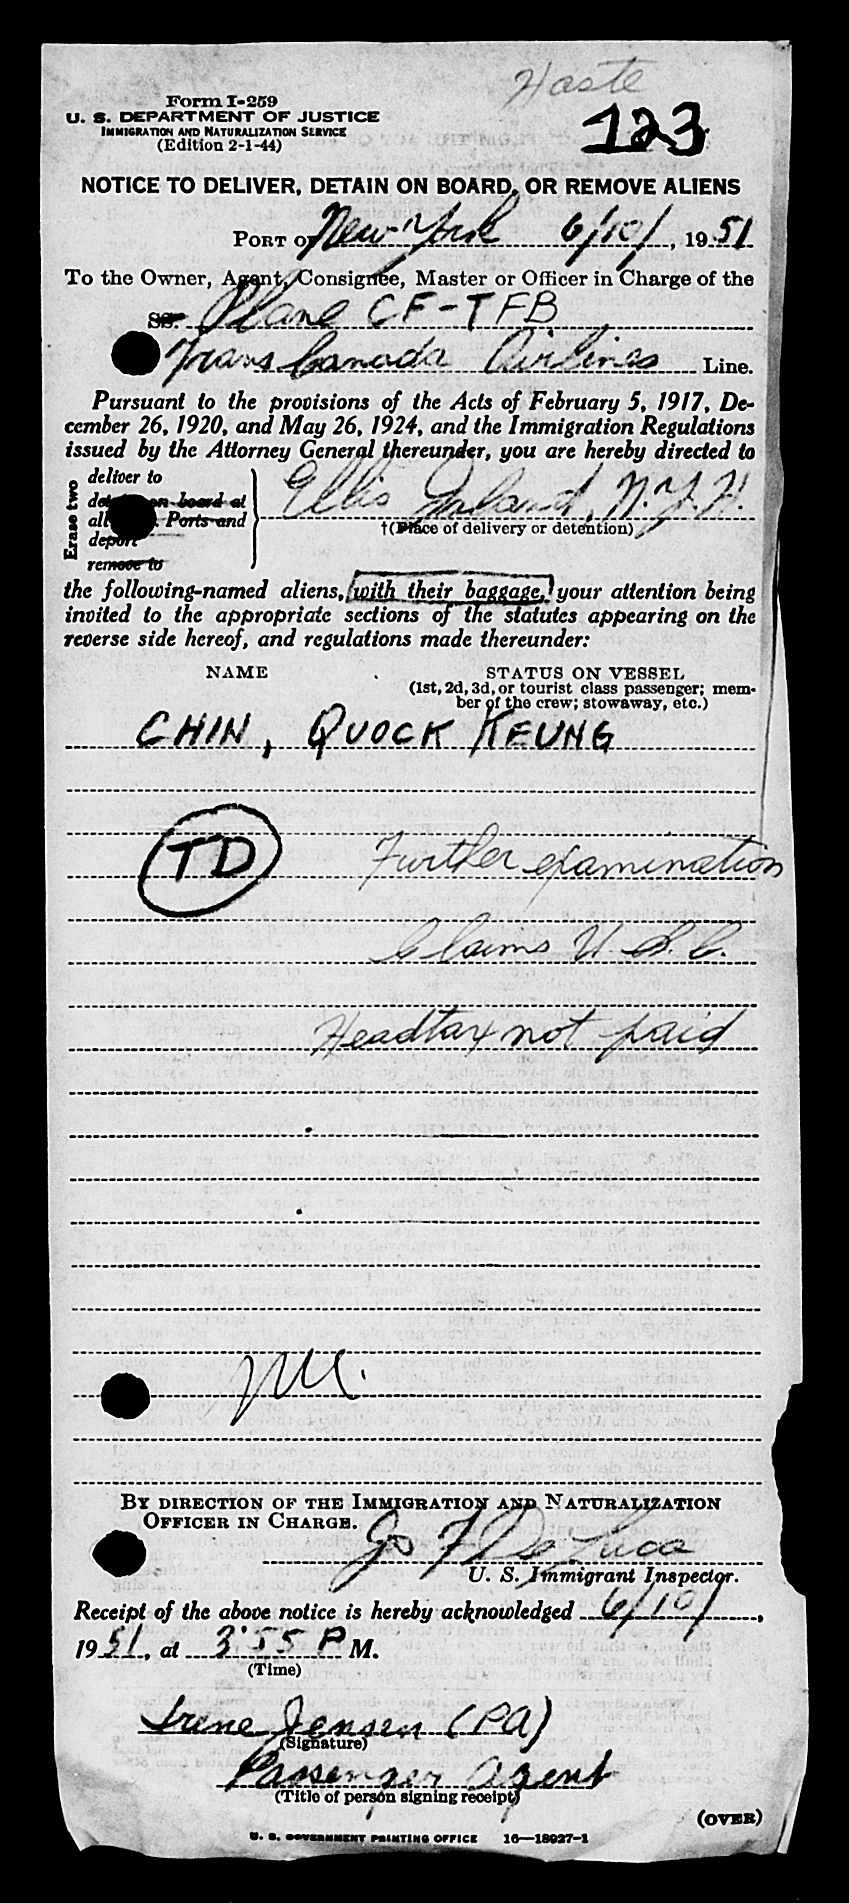 Haste
Form I-259
U. S. DEPARTMENT OF JUSTICE
IMMIGRATION AND NATURALIZATION SERVICE
(Edition 2-1-44)
123
NOTICE TO DELIVER, DETAIN ON BOARD, OR REMOVE ALIENS
PORT OF New York 6/10/, 1951
To the Owner, Agent, Consignee, Master or Officer in Charge of the
SS. Plane CF-TFB
Trans Canada Airlines Line.
Pursuant to the provisions of the Acts of February 5, 1917, De-
cember 26, 1920, and May 26, 1924, and the Immigration Regulations
issued by the Attorney General thereunder, you are hereby directed to
Erase two
deliver to
on board at
Ports and
deport
remove to
Ellis Island, N.Y.H.
†(Place of delivery or detention)
the following-named aliens, with their baggage, your attention being
invited to the appropriate sections of the statutes appearing on the
reverse side hereof, and regulations made thereunder:
NAME STATUS ON VESSEL
(1st, 2d, 3d, or tourist class passenger; mem-
ber of the crew; stowaway, etc.)
CHIN, QUOCK KEUNG
TD Further examination
Claims U.S.C.
Headtax not paid
BY DIRECTION OF THE IMMIGRATION AND NATURALIZATION
OFFICER IN CHARGE.
Jo F De Luca
U. S. Immigrant Inspector.
Receipt of the above notice is hereby acknowledged 6/10/,
1951, at 3:55 P M.
(Time)
Irene Jensen (PA)
(Signature)
Passenger Agent
(Title of person signing receipt)
(OVER)
U. S. GOVERNMENT PRINTING OFFICE 16—18927-1